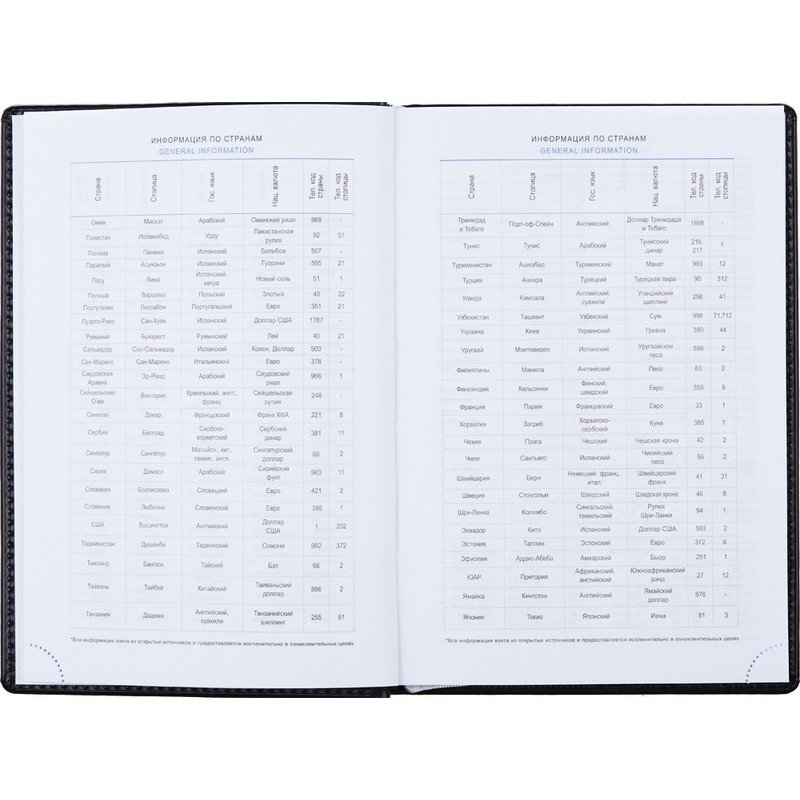 ИНФОРМАЦИЯ ПО СТРАНАМ
GENERAL INFORMATION
Страна Столица Гос. язык Нац. валюта Тел. код страны Тел. код столицы
Оман Маскат Арабский Оманский риал 968 -
Пакистан Исламабад Урду Пакистанская рупия 92 51
Панама Панама Испанский Бальбоа 507 -
Парагвай Асунсьон Испанский Гуарани 595 21
Перу Лима Испанский, кечуа Новый соль 51 1
Польша Варшава Польский Злотый 48 22
Португалия Лиссабон Португальский Евро 351 21
Пуэрто-Рико Сан-Хуан Испанский Доллар США 1787 -
Румыния Бухарест Румынский Лей 40 21
Сальвадор Сан-Сальвадор Испанский Колон, Доллар 503 -
Сан-Марино Сан-Марино Итальянский Евро 378 -
Саудовская Аравия Эр-Рияд Арабский Саудовский риал 966 1
Сейшельские О-ва Виктория Креольский, англ., франц. Сейшельская рупия 248 -
Сенегал Дакар Французский Франк КФА 221 8
Сербия Белград Сербско-хорватский Сербский динар 381 11
Сингапур Сингапур Малайск., кит. тамил., англ. Сингапурский доллар 65 2
Сирия Дамаск Арабский Сирийский фунт 963 11
Словакия Братислава Словацкий Евро 421 2
Словения Любляна Словенский Евро 386 1
США Вашингтон Английский Доллар США 1 202
Таджикистан Душанбе Таджикский Сомони 992 372
Таиланд Бангкок Тайский Бат 66 2
Тайвань Тайбей Китайский Тайваньский доллар 886 2
Танзания Додома Английский, суахили Танзанийский шиллинг 255 61
*Вся информация взята из открытых источников и предоставляется исключительно в ознакомительных целях
ИНФОРМАЦИЯ ПО СТРАНАМ
GENERAL INFORMATION
Страна Столица Гос. язык Нац. валюта Тел. код страны Тел. код столицы
Тринидад и Тобаго Порт-оф-Спейн Английский Доллар Тринидада и Тобаго 1868 -
Тунис Тунис Арабский Тунисский динар 216, 217 1
Туркменистан Ашхабад Туркменский Манат 993 12
Турция Анкара Турецкий Турецкая лира 90 312
Уганда Кампала Английский, суахили Угандийский шиллинг 256 41
Узбекистан Ташкент Узбекский Сум 998 71,712
Украина Киев Украинский Гривна 380 44
Уругвай Монтевидео Испанский Уругвайское песо 598 2
Филиппины Манила Английский Песо 63 2
Финляндия Хельсинки Финский, шведский Евро 358 9
Франция Париж Французский Евро 33 1
Хорватия Загреб Хорватско-сербский Куна 385 1
Чехия Прага Чешский Чешская крона 42 2
Чили Сантьяго Испанский Чилийский песо 56 2
Швейцария Берн Немецкий, франц., итал. Швейцарский франк 41 31
Швеция Стокгольм Шведский Шведская крона 46 8
Шри-Ланка Коломбо Сингальский, тамильский Рупия Шри-Ланки 94 1
Эквадор Кито Испанский Доллар США 593 2
Эстония Таллин Эстонский Евро 372 6
Эфиопия Аддис-Абеба Амхарский Бырр 251 1
ЮАР Претория Африканский, английский Южноафриканский ранд 27 12
Ямайка Кингстон Английский Ямайский доллар 876 -
Япония Токио Японский Иена 81 3
*Вся информация взята из открытых источников и предоставляется исключительно в ознакомительных целях